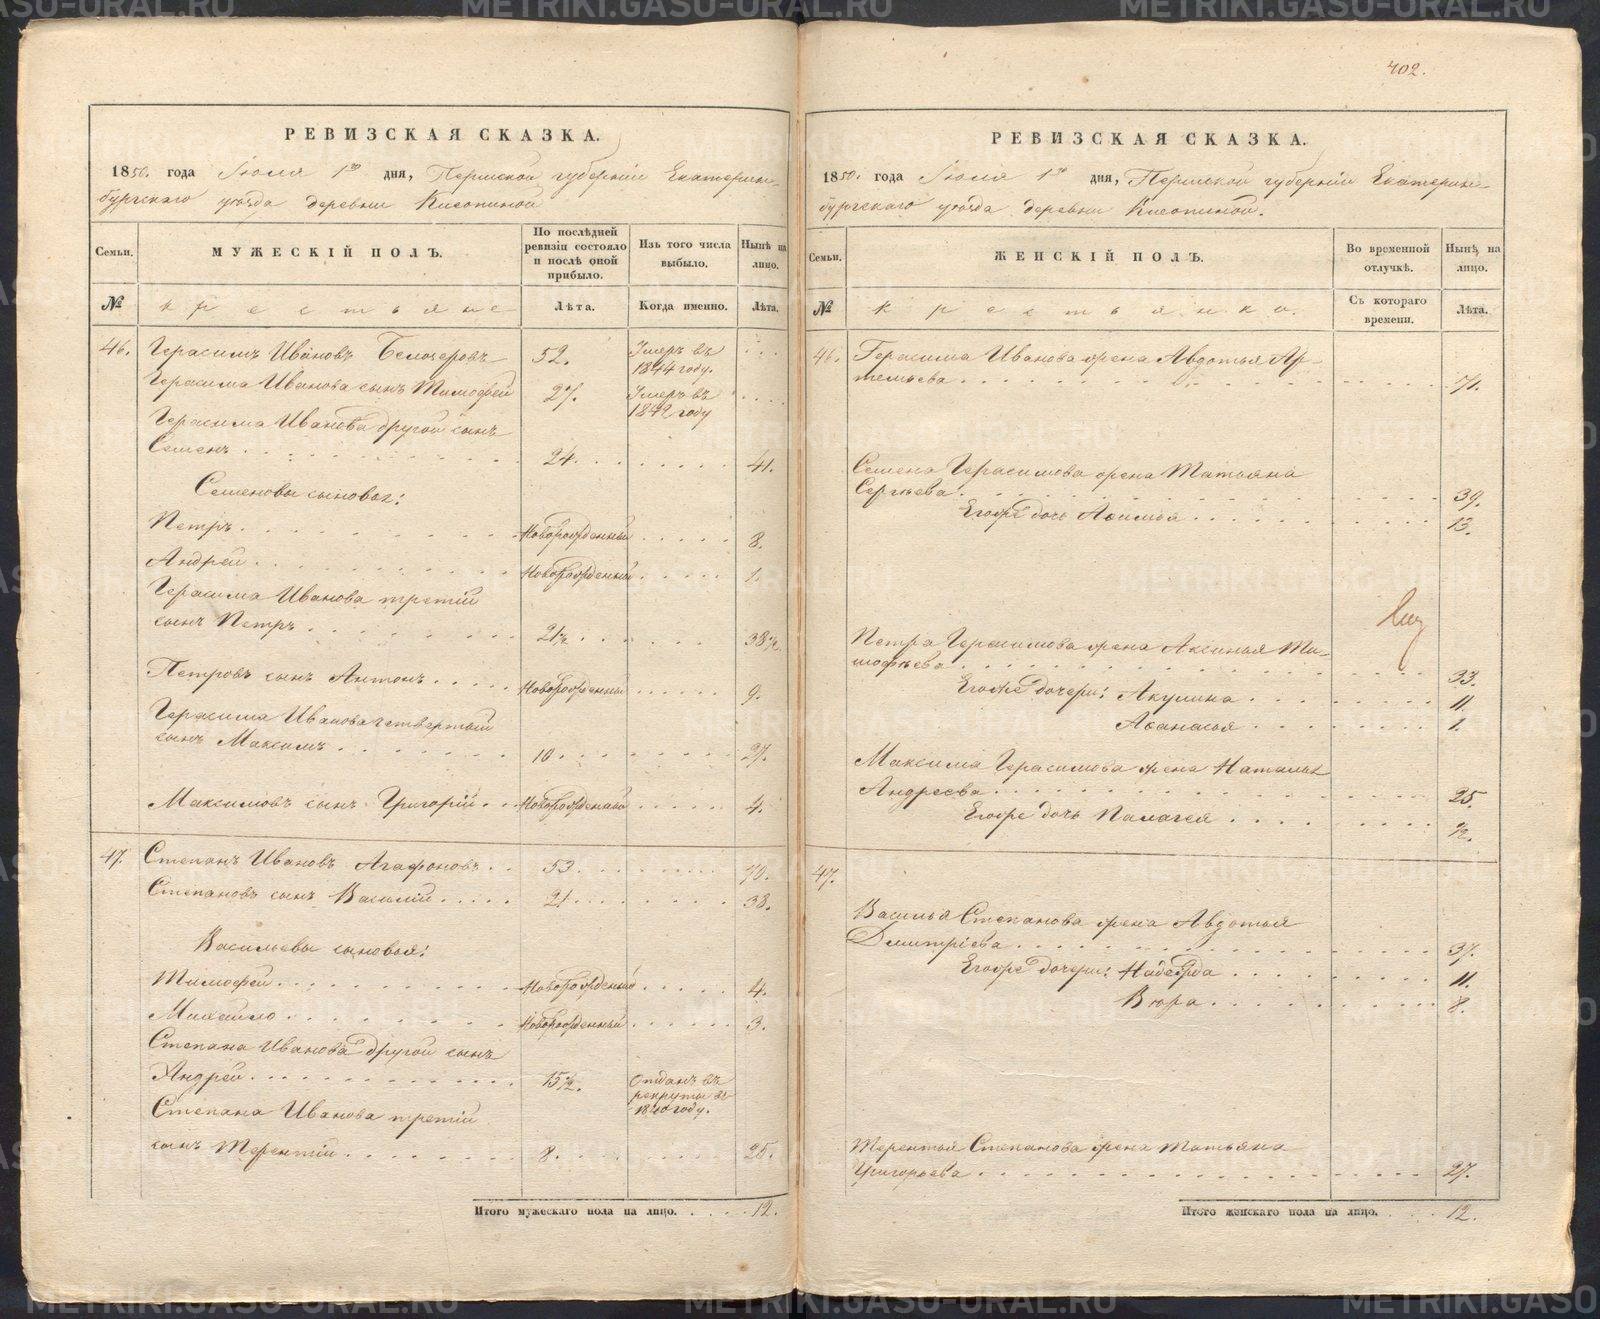 402.
РЕВИЗСКАЯ СКАЗКА.
1850. года Июля 1го дня, Пермской губерніи Екатерин-
бургскаго уѣзда деревни
Семьи.
МУЖЕСКІЙ ПОЛЪ.
По послѣдней ревизіи состояло и послѣ оной прибыло.
Изъ того числа выбыло.
Нынѣ на лицо.
№
крестьяне
Лѣта.
Когда именно.
Лѣта.
46. Герасимъ Ивановъ Белочеровъ 52. Умеръ въ 1844 году.
Герасима Иванова сынъ Тимофей 27. Умеръ въ 1842 году
Герасима Иванова другой сынъ
Семенъ 24. 41.
Семеновы сыновья:
Петръ Новорожденный 8.
Андрей Новорожденный 1.
Герасима Иванова третій
сынъ Петръ 21½ 38½.
Петровъ сынъ Антонъ Новорожденный 9.
Герасима Иванова четвертый
сынъ Максимъ 10. 27.
Максимовъ сынъ Григорій Новорожденный 4.
47. Степанъ Ивановъ Агафоновъ 53. 70.
Степановъ сынъ Василій 21. 38.
Васильевы сыновья:
Тимофей Новорожденный 4.
Михайло Новорожденный 3.
Степана Иванова другой сынъ
Андрей 15½. Отданъ въ рекруты въ 1840 году.
Степана Иванова третій
сынъ Терентій 8. 25.
Итого мужескаго пола на лицо. 12.
РЕВИЗСКАЯ СКАЗКА.
1850. года Июля 1го дня, Пермской губерніи Екатерин-
бургскаго уѣзда деревни
Семьи.
ЖЕНСКІЙ ПОЛЪ.
Во временной отлучкѣ.
Нынѣ на лицо.
№
крестьянки.
Съ котораго времени.
Лѣта.
46. Герасима Иванова жена Авдотья Ар-
темьева 71.
Семена Герасимова жена Татьяна
Сергѣева 39.
Егоже дочь Аксинья 13.
Петра Герасимова жена Аксинья Ти-
мофѣева 33.
Егоже дочери: Акулина 11.
Афанасья 1.
Максима Герасимова жена Наталья
Андреева 25.
Егоже дочь Палагея ½.
47.
Василья Степанова жена Авдотья
Дмитріева 37.
Егоже дочери: Надежда 11.
Вѣра 8.
Терентья Степанова жена Татьяна
Григорьева 27.
Итого женскаго пола на лицо. 12.
METRIKI.GASU-URAL.RU